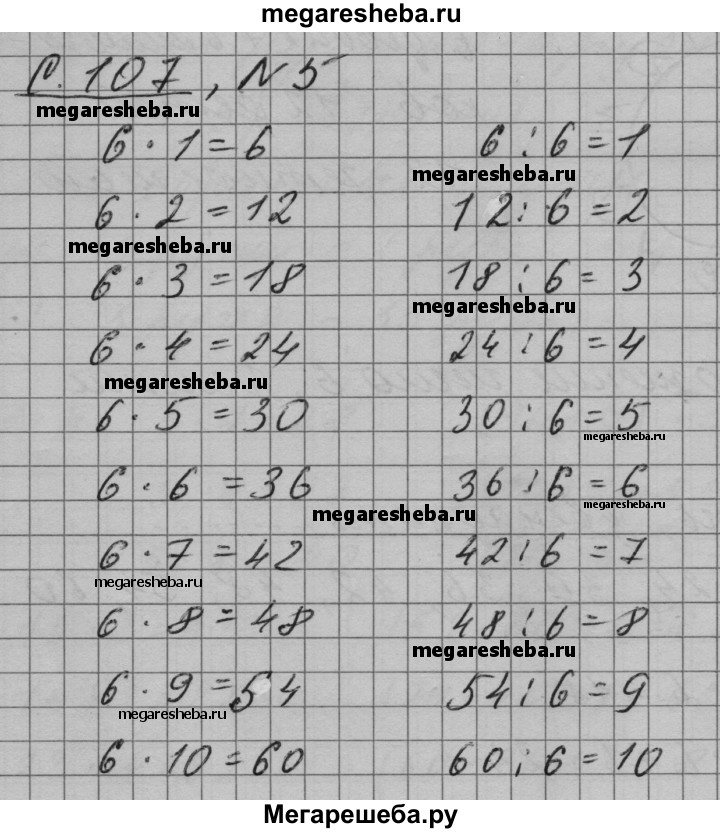 megaresheba.ru
С. 107, N 5
megaresheba.ru
6 · 1 = 6 6 : 6 = 1
megaresheba.ru
6 · 2 = 12 12 : 6 = 2
megaresheba.ru
6 · 3 = 18 18 : 6 = 3
megaresheba.ru
6 · 4 = 24 24 : 6 = 4
megaresheba.ru
6 · 5 = 30 30 : 6 = 5
megaresheba.ru
6 · 6 = 36 36 : 6 = 6
megaresheba.ru
megaresheba.ru
6 · 7 = 42 42 : 6 = 7
megaresheba.ru
6 · 8 = 48 48 : 6 = 8
megaresheba.ru
6 · 9 = 54 54 : 6 = 9
megaresheba.ru
6 · 10 = 60 60 : 6 = 10
Мегарешеба.ру